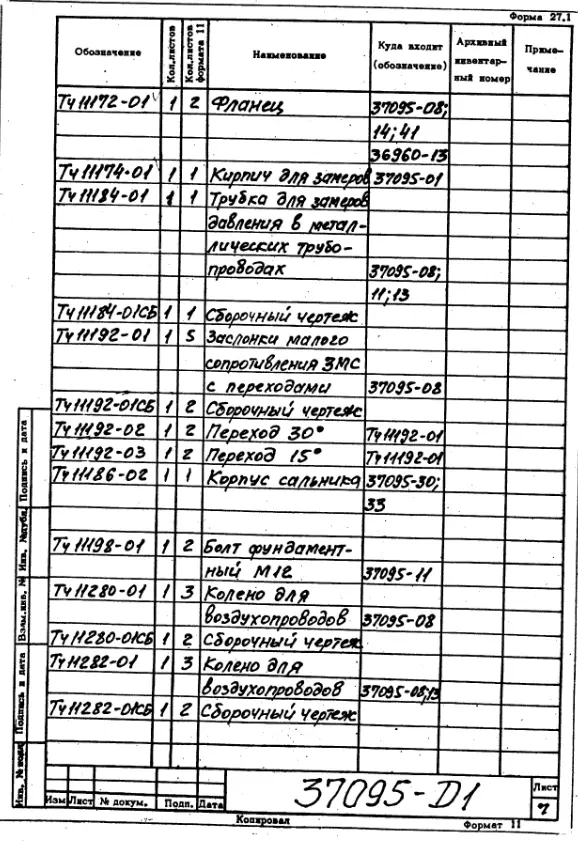 Форма 27.1
Обозначение Кол.листов Кол.листов формата 11 Наименование Куда входит (обозначение) Архивный инвентарный номер Примечание
Тч 11172-01 1 2 Фланец 37095-08;
14; 41
36960-13
Тч 11174-01 1 1 Кирпич для замеров 37095-01
Тч 11184-01 1 1 Трубка для замеров
давления в метал-
лических трубо-
проводах 37095-08;
11; 13
Тч 11184-01СБ 1 1 Сборочный чертеж
Тч 11192-01 1 5 Заслонки малого
сопротивления ЗМС
с переходами 37095-08
Тч 11192-01СБ 1 2 Сборочный чертеж
Тч 11192-02 1 2 Переход 30° Тч 11192-01
Тч 11192-03 1 2 Переход 15° Тч 11192-01
Тч 11186-02 1 1 Корпус сальника 37095-30;
33
Тч 11198-01 1 2 Болт фундамент-
ный М12 37095-11
Тч 11280-01 1 3 Колено для
воздухопроводов 37095-08
Тч 11280-01СБ 1 2 Сборочный чертеж
Тч 11282-01 1 3 Колено для
воздухопроводов 37095-08;13
Тч 11282-01СБ 1 2 Сборочный чертеж
Подпись и дата
Инв. № дубл.
Взам.инв. №
Подпись и дата
Инв. № подл.
Изм Лист № докум. Подп. Дата
37095-D1
Лист
7
Копировал Формат 11